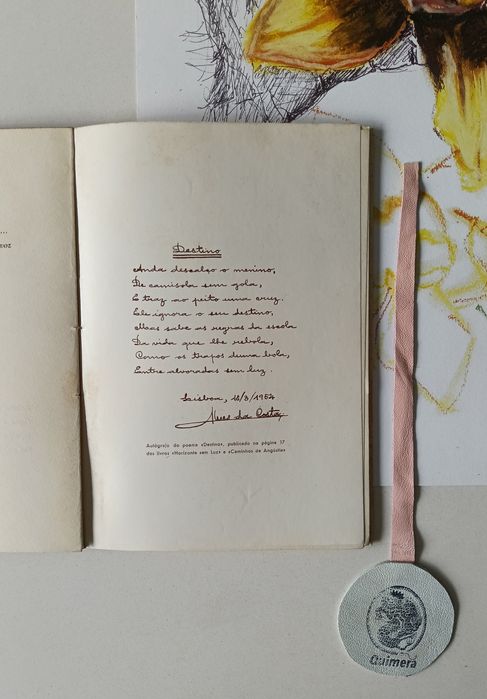 Destino
Anda descalso o menino,
De camisola sem gola,
E traz ao peito uma cruz.
Ele ignora o seu destino,
Mas sabe as regras da escola
Da vida que lhe rebola,
Como os trapos duma bola,
Entre alvoradas sem luz.
Lisboa, 18/3/1954
Alves da Costa
Autógrafo do poema «Destino», publicado na página 17
dos livros «Horizonte sem Luz» e «Caminhos de Angústia»
Quimera